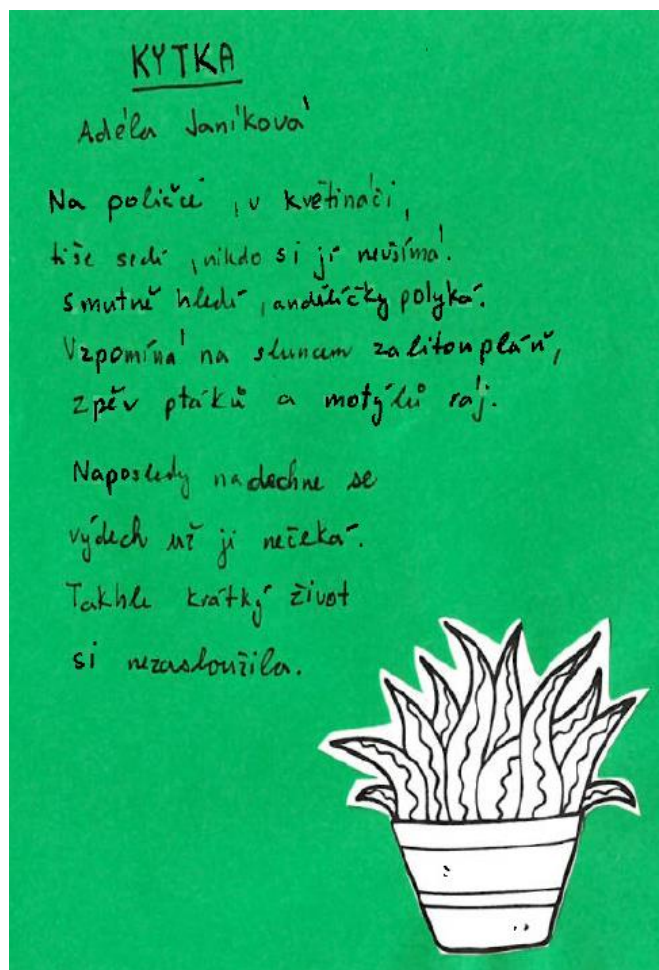 KYTKA
Adéla Janíková
Na poličce, v květináči,
tiše sedí, nikdo si jí nevšímá.
Smutně hledí, andělíčky polyká.
Vzpomíná na sluncem zalitou pláň,
zpěv ptáků a motýlů ráj.
Naposledy nadechne se
výdech už ji nečeká.
Takhle krátký život
si nezasloužila.